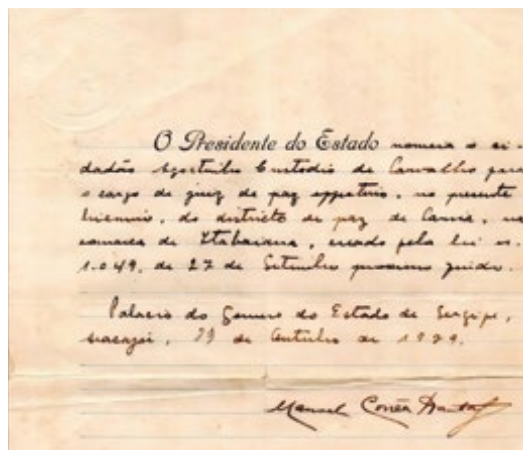 O Presidente do Estado nomeia o ci-
dadão Agostinho Custodio de Carvalho para
o cargo de juiz de paz effectivo, no presente
biennio, do districto de paz de Carira, na
comarca de Itabaiana, creado pela lei n.
1.049, de 27 de Setembro proximo findo.
Palacio do Governo do Estado de Sergipe,
Aracajú, de Outubro de 1929.
Manuel Corrêa Dantas